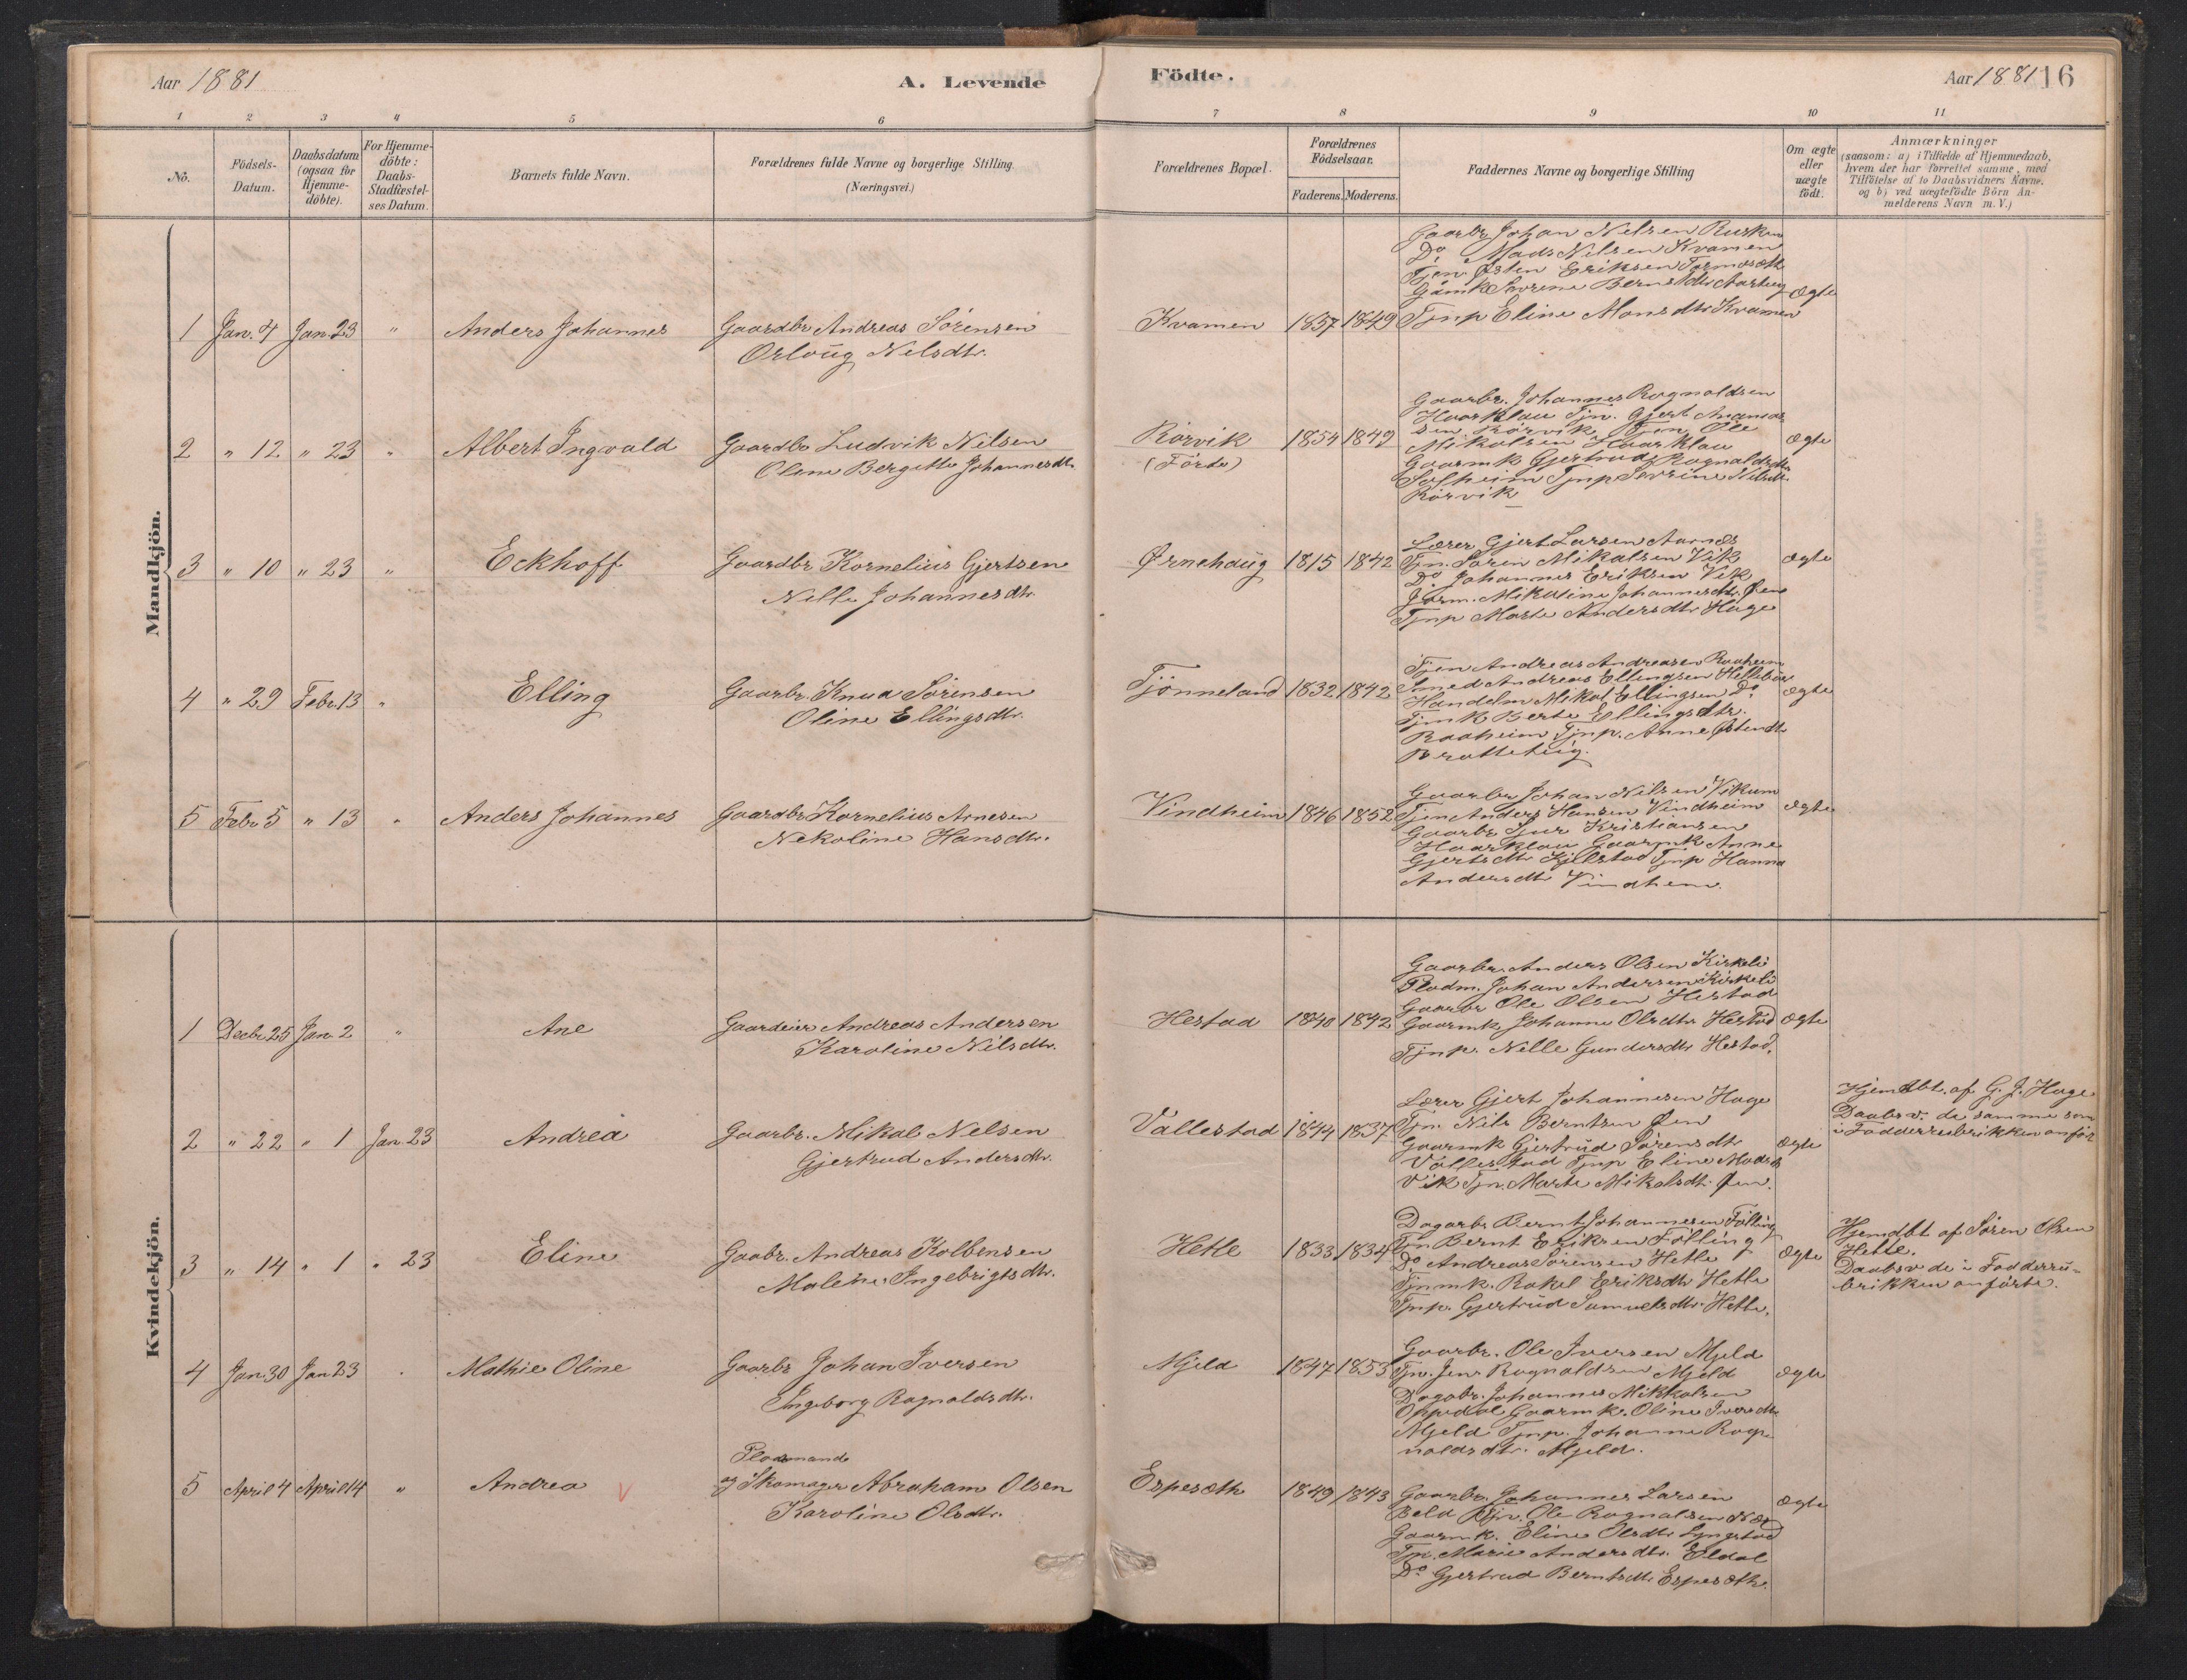 Aar 1881
A. Levende
Födte.
Aar 1881
16
1 2 3 4 5 6 7 8 9 10 11
No.
Födsels-
Datum.
Daabsdatum
(ogsaa for
Hjemme-
döbte).
For Hjemme-
döbte:
Daabs-
Stadfæstel-
ses Datum.
Barnets fulde Navn.
Forældrenes fulde Navne og borgerlige Stilling.
(Næringsvei.)
Forældrenes Bopæl.
Forældrenes
Födselsaar.
Faderens. Moderens.
Faddernes Navne og borgerlige Stilling
Om ægte
eller
uægte
födt.
Anmærkninger
(saasom: a) i Tilfælde af Hjemmedaab,
hvem der har forrettet samme, med
Tilföielse af to Daabsvidners Navne,
og b) ved uægtefödte Börn An-
melderens Navn m. V.)
Mandkjön.
1 Jan. 4 Jan 23 " Anders Johannes
Gaardbr Andreas Sörensen
Orloug Nelsdtr.
Kvamen 1857 1849
Gaarbr Johan Nilsen
Do Mads Nilsen Kvamen
Tjen Østen Eriksen
Tjnp Eline Monsdtr Kvamen
ægte
2 " 12 " 23 " Albert Ingvald
Gaardbr Ludvik Nilsen
Oline Bergitte Johannesdtr.
Rörvik
(Förde)
1854 1849
Gaarbr. Johannes Ragnaldsen
Haarklau Tjn. Gjert
sen Rörvik Tjen Ole
Mikalsen Haarklau
Gaarmk Gjertrud Ragnaldsdtr
Solheim Tjnp Sevrine Nilsdtr.
Rörvik
ægte
3 " 10 " 23 " Eckhoff
Gaardbr Kornelius Gjertsen
Nelle Johannesdtr.
Ørnehaug 1815 1842
Lærer Gjert Larsen Aarnes
Tjn. Sören Mikalsen Vik
Do Johannes Eriksen Vik
Mikaline Johannesdtr. Øen
Tjnp Marte Andersdtr Hage
ægte
4 " 29 Febr. 13 " Elling
Gaarbr. Knud Sörensen
Oline Ellingsdtr.
Tjönneland 1832 1842
Tjen Andreas Andreasen Raaheim
Smed Andreas Ellingsen
Handelm Mikal Ellingsen Do
Berte Ellingsdtr.
Raaheim Tjnp. Anne Østendtr
Brattehüg.
ægte
5 Febr 5 " 13 " Anders Johannes
Gaardbr Kornelius Arnesen
Nekoline Hansdtr.
Vindheim 1846 1852
Gaarbr Johan Nilsen Vikum
Tjen Anders Hansen Vindheim
Gaarbr Sjur Kristiansen
Haarklau Gaarmk Anne
Gjertsdtr Kjelstad Tjnp Hanna
Andersdtr Vindheim.
ægte
Kvindekjön.
1 Decbr 25 Jan 2 " Ane
Gaardeier Andreas Andersen
Karoline Nilsdtr.
Hestad 1840 1842
Gaarbr. Anders Olsen Kirkeli
Pladm. Johan Andersen Kirkeli
Gaarbr Ole Olsen Hestad
Gaarmk Johanne Olsdtr Hestad
Tjnp. Nelle Gundersdtr Hestad.
ægte
2 " 22 " 1 Jan 23 Andrea
Gaarbr. Mikal Nelsen
Gjertrud Andersdtr.
Vallestad 1844 1837
Lærer Gjert Johannesen Hage
Tjn. Nils Berntsen Øen
Gaarmk Gjertrud Sörensdtr
Vallestad Tjnp Eline Madsdtr
Vik Tjn. Marte Mikalsdtr. Øen.
ægte
Hjemdbt. af G. J. Hage
Daabsv. de samme som
i Fadderrubrikken anför
3 " 14 " 1 " 23 Eline
Gaabr. Andreas Kolbensen
Malene Ingebrigtsdtr.
Hetle 1833 1834
Dagarbr Bernt Johannesen Fölling
Tjn Bernt Eriksen Fölling
Do Andreas Sörensen Hetle
Tjnmk. Rakel Eriksdtr Hetle
Tjnp. Gjertrud Samuelsdtr. Hetle.
ægte
Hjemdbt af Sören Olsen
Hetle.
Daabsv de i Fadderru-
brikken anförte.
4 Jan 30 Jan 23 . Mathie Oline
Gaarbr Johan Iversen
Ingeborg Ragnaldsdtr.
Mjeld 1847 1853
Gaarbr. Ole Iversen Mjeld
Tjn. Jens Ragnaldsen Mjeld
Dagabr. Johannes Mikkalsen
Oppedal Gaarmk. Oline Iversdtr
Mjeld Tjnp. Johanne Rag-
naldsdtr. Mjeld.
ægte
5 April 4 April 14 " Andrea V
Pladsmand
og Skomager Abraham Olsen
Karoline Olsdtr.
Espesæth 1849 1843
Gaarbr Johannes Larsen
Beld Tjn. Ole Ragnalsen
Gaarmk. Eline Olsdtr Lyngstad
Tjn. Marie Andersdtr. Eldal
Do Gjertrud Berntsdtr Espesæth.
ægte